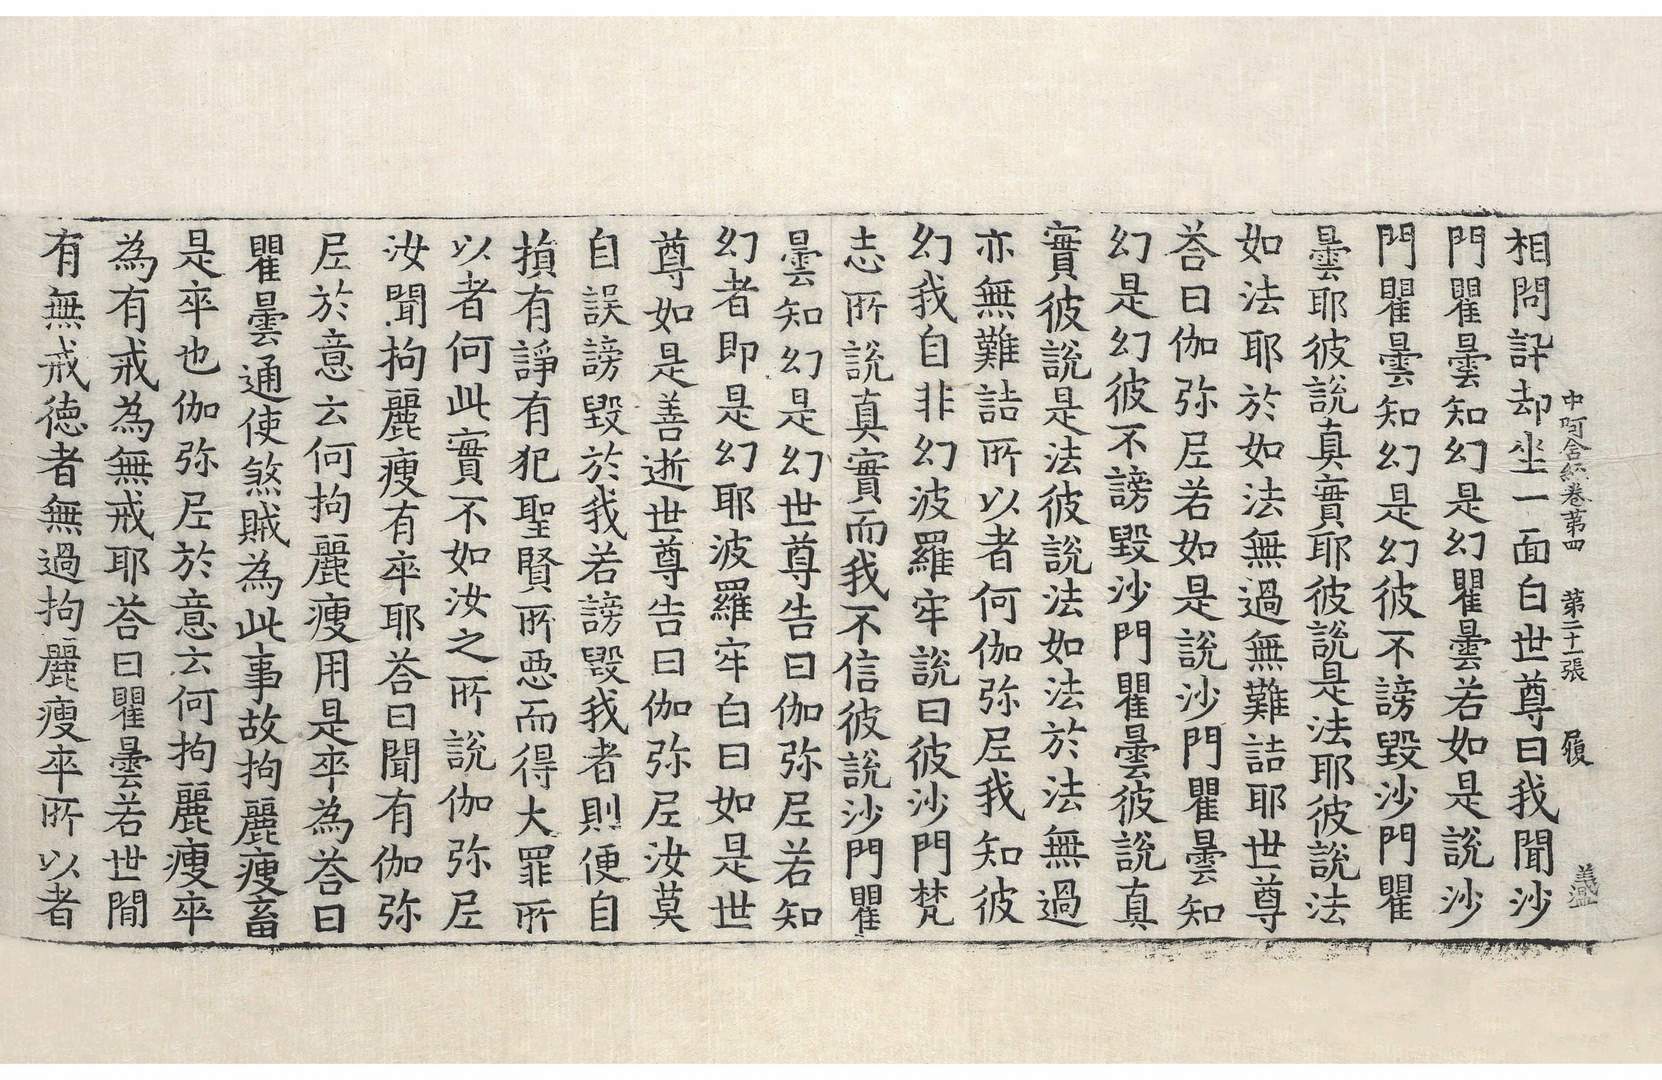 中阿含經卷第四　第二十一張　履　義溫
相問訊却坐一面白世尊曰我聞沙
門瞿曇知幻是幻瞿曇若如是說沙
門瞿曇知幻是幻彼不謗毀沙門瞿
曇耶彼說真實耶彼說是法耶彼說法
如法耶於如法無過無難詰耶世尊
荅曰伽弥尼若如是說沙門瞿曇知
幻是幻彼不謗毀沙門瞿曇彼說真
實彼說是法彼說法如法於法無過
亦無難詰所以者何伽弥尼我知彼
幻我自非幻波羅牢說曰彼沙門梵
志所說真實而我不信彼說沙門瞿
曇知幻是幻世尊告曰伽弥尼若知
幻者即是幻耶波羅牢白曰如是世
尊如是善逝世尊告曰伽弥尼汝莫
自誤謗毀於我若謗毀我者則便自
損有諍有犯聖賢所惡而得大罪所
以者何此實不如汝之所說伽弥尼
汝聞拘麗瘦有卒耶荅曰聞有伽弥
尼於意云何拘麗瘦用是卒為荅曰
瞿曇通使煞賊為此事故拘麗瘦畜
是卒也伽弥尼於意云何拘麗瘦卒
為有戒為無戒耶荅曰瞿曇若世間
有無戒德者無過拘麗瘦卒所以者